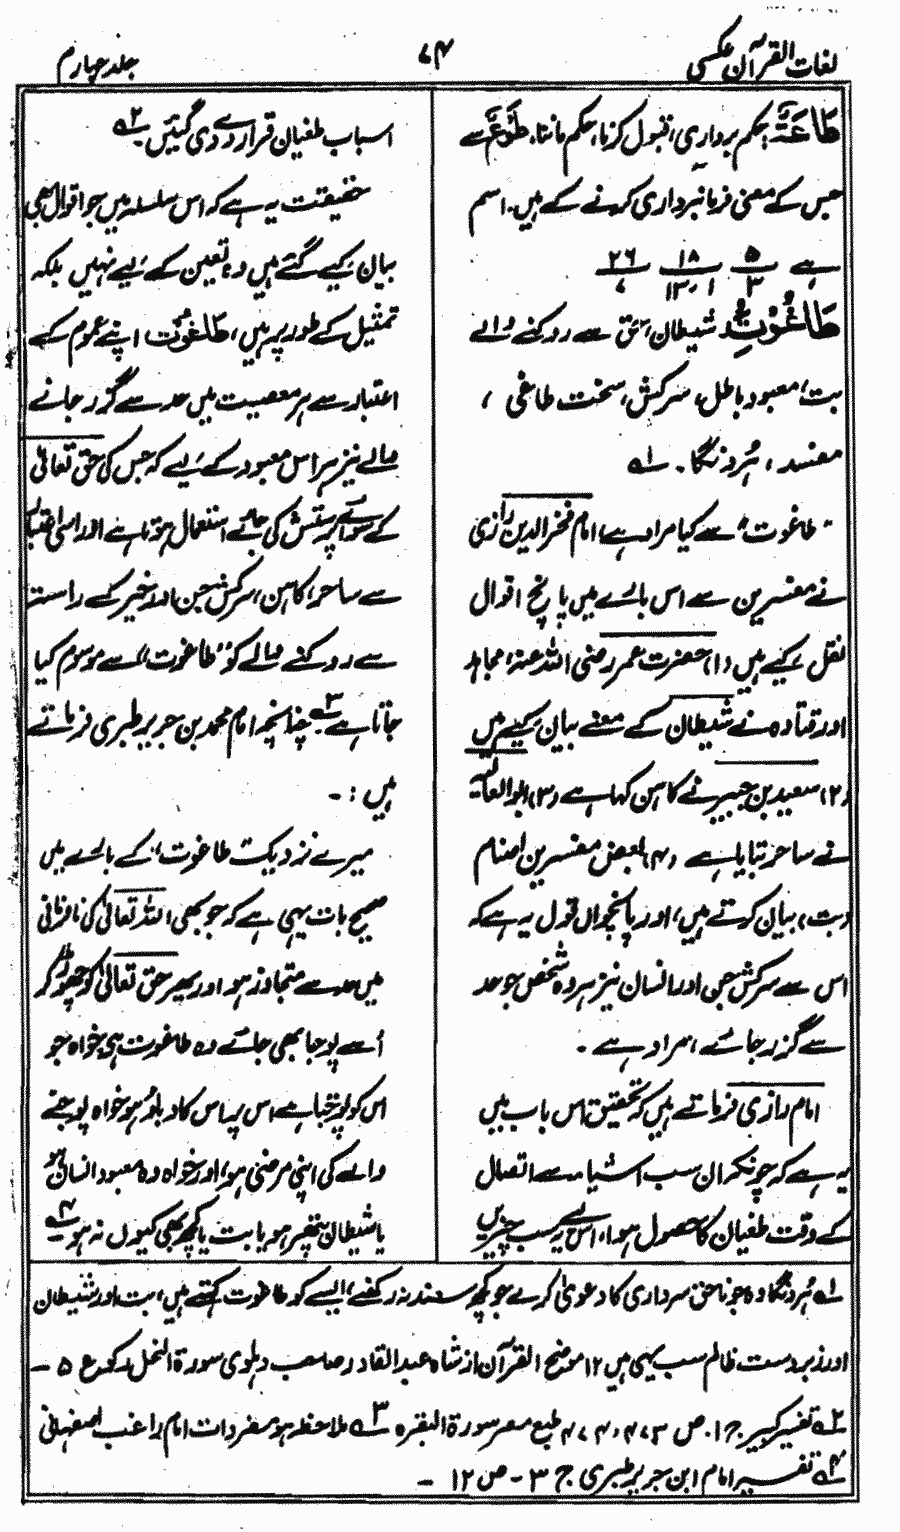 لغات القرآن عکسی
۷۴
جلد چہارم
طَاعَۃٌ، حکم برداری، قبول کرنا، حکم ماننا، طَوْعٌ سے
جس کے معنی فرمانبرداری کرنے کے ہیں۔ اسم
ہے ۵/۳ ۱۸/۱۰،۱۳ ۲۶/۷
طَاغُوْتِ شیطان، سَقّ سے روکنے والے
بت، معبودِ باطل، سرکش، سخت طاغی،
مفسد، ہُردنگا۔ ؎۱
"طاغوت" سے کیا مراد ہے، امام فخر الدین رازی
نے مفسرین سے اس بارے میں پانچ اقوال
نقل کیے ہیں (۱) حضرت عمر رضی اللہ عنہ، مجاہد
اور قتادہ نے شیطان کے معنے بیان کیے ہیں
(۲) سعید بن جبیر نے کاہن کہا ہے (۳) ابو العالیہ
نے ساحر بتایا ہے (۴) بعض مفسرین اصنام
(بت) بیان کرتے ہیں، اور پانچواں قول یہ ہے کہ
اس سے سرکش جن اور انسان نیز ہر وہ شخص جو حد
سے گزر جائے، مراد ہے۔
امام رازی فرماتے ہیں کہ تحقیق اس باب میں
یہ ہے کہ چونکہ ان سب اشیاء سے اتصال
کے وقت طغیان کا حصول ہوا، اس لئے یہ سب چیزیں
اسباب طغیان قرار دے دی گئیں۔ ؎۲
حقیقت یہ ہے کہ اس سلسلہ میں جو اقوال بھی
بیان کیے گئے ہیں وہ تعین کے لیے نہیں بلکہ
تمثیل کے طور پر ہیں، طاغوت اپنے عموم کے
اعتبار سے ہر معصیت میں حد سے گزر جانے
والے نیز ہر اس معبود کے لیے کہ جس کی حق تعالیٰ
کے سوائے پرستش کی جائے استعمال ہوتا ہے اور اسی اعتبار
سے ساحر، کاہن، سرکش جن اور خیر کے راستہ
سے روکنے والے کو "طاغوت" سے موسوم کیا
جاتا ہے۔ ؎۳ چنانچہ امام محمد بن جریر طبری فرماتے
ہیں :۔
میرے نزدیک "طاغوت" کے بارے میں
صحیح بات یہی ہے کہ جو بھی اللہ تعالیٰ کی نافرمانی
میں حد سے متجاوز ہو اور پھر حق تعالیٰ کو چھوڑ کر
اُسے پوجا بھی جائے وہ طاغوت ہی، خواہ جو
اس کو پوجتا ہے اس پر اس کا دباؤ ہو خواہ پوجنے
والے کی اپنی مرضی ہو، اور خواہ وہ معبود انسان ہو
یا شیطان پتھر ہو یا بت یا کچھ بھی کیوں نہ ہو۔ ؎۴
؎۱ ہُردنگا وہ جو ناحق سرداری کا دعویٰ کرے جو کچھ سند نہ رکھنے، ایسے کو طاغوت کہتے ہیں، بت اور شیطان
اور زبردست ظالم سب یہی ہیں ۱۲ موضح القرآن از شاہ عبد القادر صاحب دہلوی سورۃ النحل رکوع ۵ ۔
؎۲ تفسیر کبیر ج ۱، ص ۴۷۳، ۴۷۴ طبع مصر سورۃ البقرہ ؎۳ ملاحظہ ہو مفردات امام راغب اصفہانی
؎۴ تفسیر امام ابن جریر طبری ج ۳ ۔ ص ۱۲ ۔